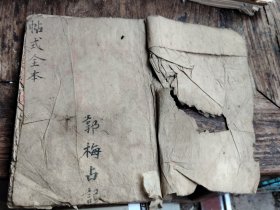 帖式全本
郭梅占記